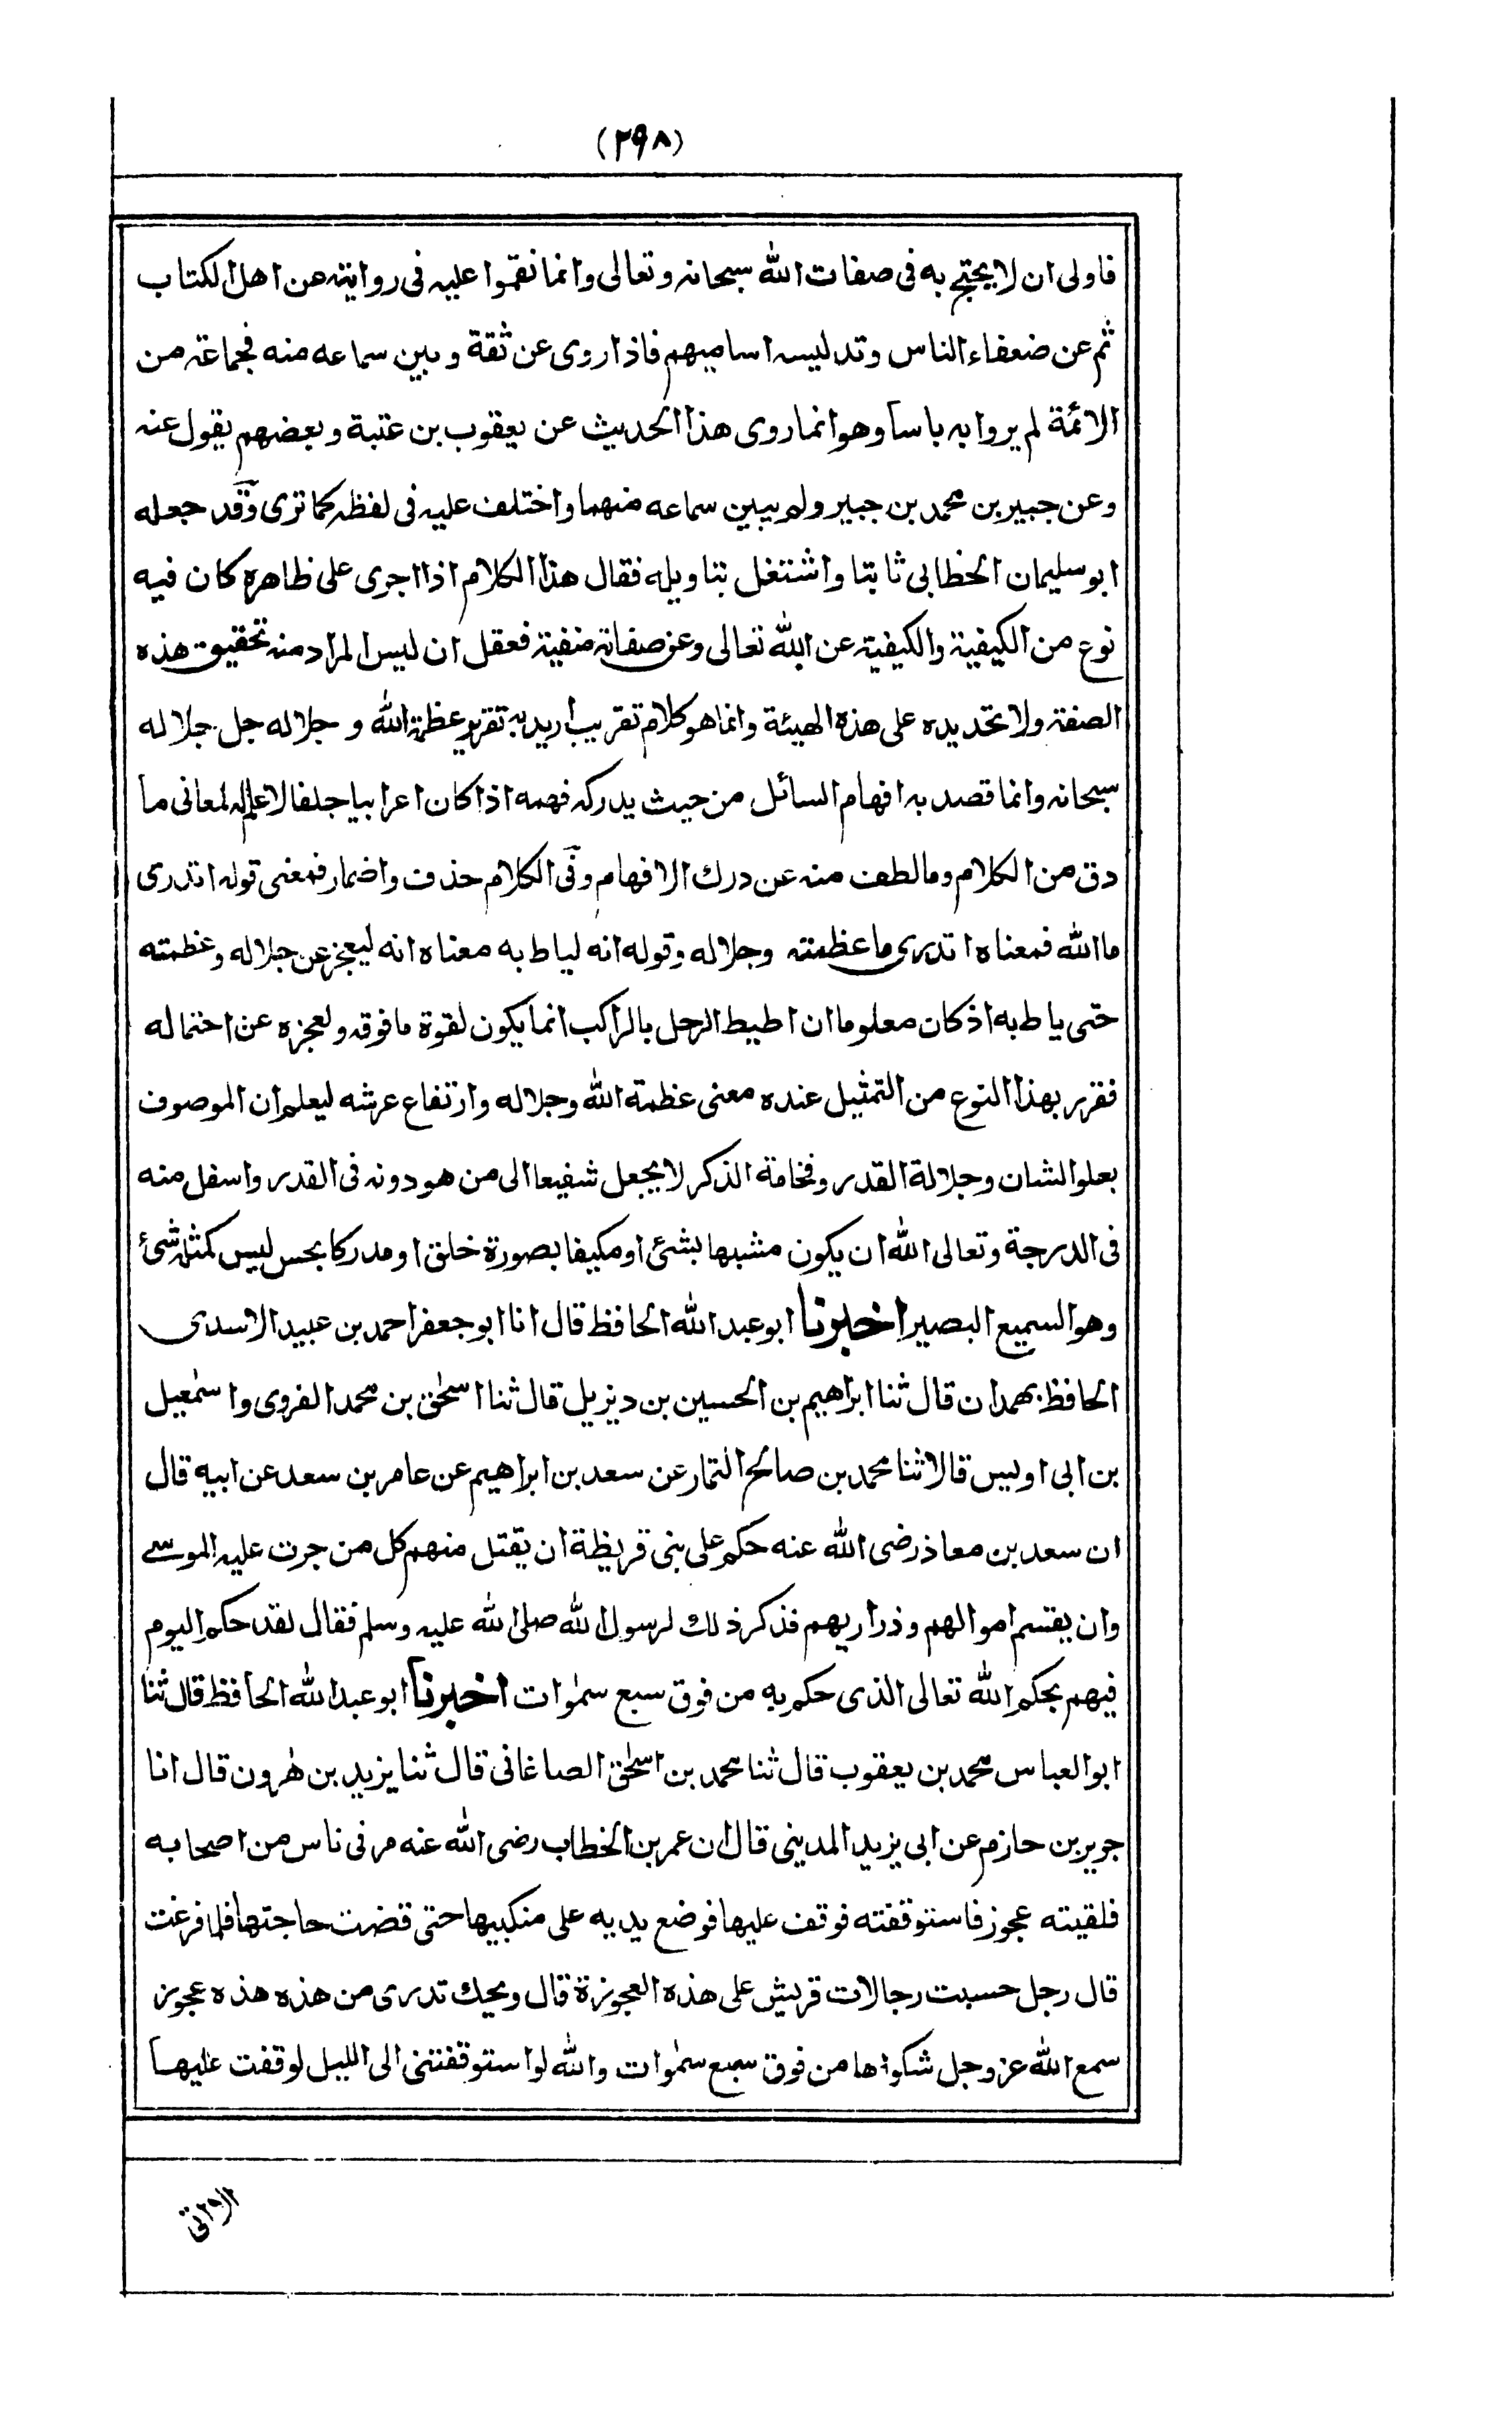 (۲۹۸)
فاولى ان لا يحتج به فى صفات الله سبحانه وتعالى وانما نقموا عليه فى روايته عن اهل الكتاب
ثم عن ضعفاء الناس وتدليسه اساميهم فاذا روى عن ثقة وبين سماعه منه فجماعة من
الائمة لم يروا به باسا وهو انما روى هذا الحديث عن يعقوب بن عتبة وبعضهم يقول عنه
وعن جبير بن محمد بن جبير ولم يبين سماعه منهما واختلف عليه فى لفظه كما ترى وقد جعله
ابو سليمان الخطابى ثابتا واشتغل بتاويله فقال هذا الكلام اذا اجرى على ظاهره كان فيه
نوع من الكيفية والكيفية عن الله تعالى وعن صفاته منفية فعقل ان ليس المراد منه تحقيق هذه
الصفة ولا تحديده على هذه الهيئة وانما هو كلام تقريب اريد به تقرير عظمة الله و جلاله جل جلاله
سبحانه وانما قصد به افهام السائل من حيث يدركه فهمه اذا كان اعرابيا جلفا لا علم له لمعانى ما
دق من الكلام وما لطف منه عن درك الافهام وفى الكلام حذف واضمار فمعنى قوله اتدرى
ما الله فمعناه اتدرى ما عظمته وجلاله وقوله انه لياط به معناه انه ليعجز عن جلاله وعظمته
حتى ياط به اذ كان معلوما ان اطيط الرحل بالراكب انما يكون لقوة ما فوقه ولعجزه عن احتماله
فقرر بهذا النوع من التمثيل عنده معنى عظمة الله وجلاله وارتفاع عرشه ليعلم ان الموصوف
بعلو الشان وجلالة القدر وفخامة الذكر لا يجعل شفيعا الى من هو دونه فى القدر واسفل منه
فى الدرجة وتعالى الله ان يكون مشبها بشئ او مكيفا بصورة خلق او مدركا بحس ليس كمثله شئ
وهو السميع البصير اخبرنا ابو عبد الله الحافظ قال انا ابو جعفر احمد بن عبيد الاسدى
الحافظ بهمدان قال ثنا ابراهيم بن الحسين بن ديزيل قال ثنا اسحٰق بن محمد الفروى واسمٰعيل
بن ابى اويس قالا ثنا محمد بن صالح التمار عن سعد بن ابراهيم عن عامر بن سعد عن ابيه قال
ان سعد بن معاذ رضى الله عنه حكم على بنى قريظة ان يقتل منهم كل من جرت عليه الموسے
وان يقتسم اموالهم وذراريهم فذكر ذلك لرسول الله صلى الله عليه وسلم فقال لقد حكم اليوم
فيهم بحكم الله تعالى الذى حكم به من فوق سبع سمٰوات اخبرنا ابو عبد الله الحافظ قال ثنا
ابو العباس محمد بن يعقوب قال ثنا محمد بن اسحٰق الصاغانى قال ثنا يزيد بن هٰرون قال انا
جرير بن حازم عن ابى يزيد المدينى قال ان عمر بن الخطاب رضى الله عنه مر فى ناس من اصحابه
فلقيته عجوز فاستوقفته فوقف عليها فوضع يديه على منكبيها حتى قضت حاجتها فلما فرغت
قال رجل حسبت رجالات قريش على هذه العجوزة قال ويحك تدرى من هذه هذه عجوز
سمع الله عز وجل شكواها من فوق سبع سمٰوات والله لو استوقفتنى الى الليل لوقفت عليها